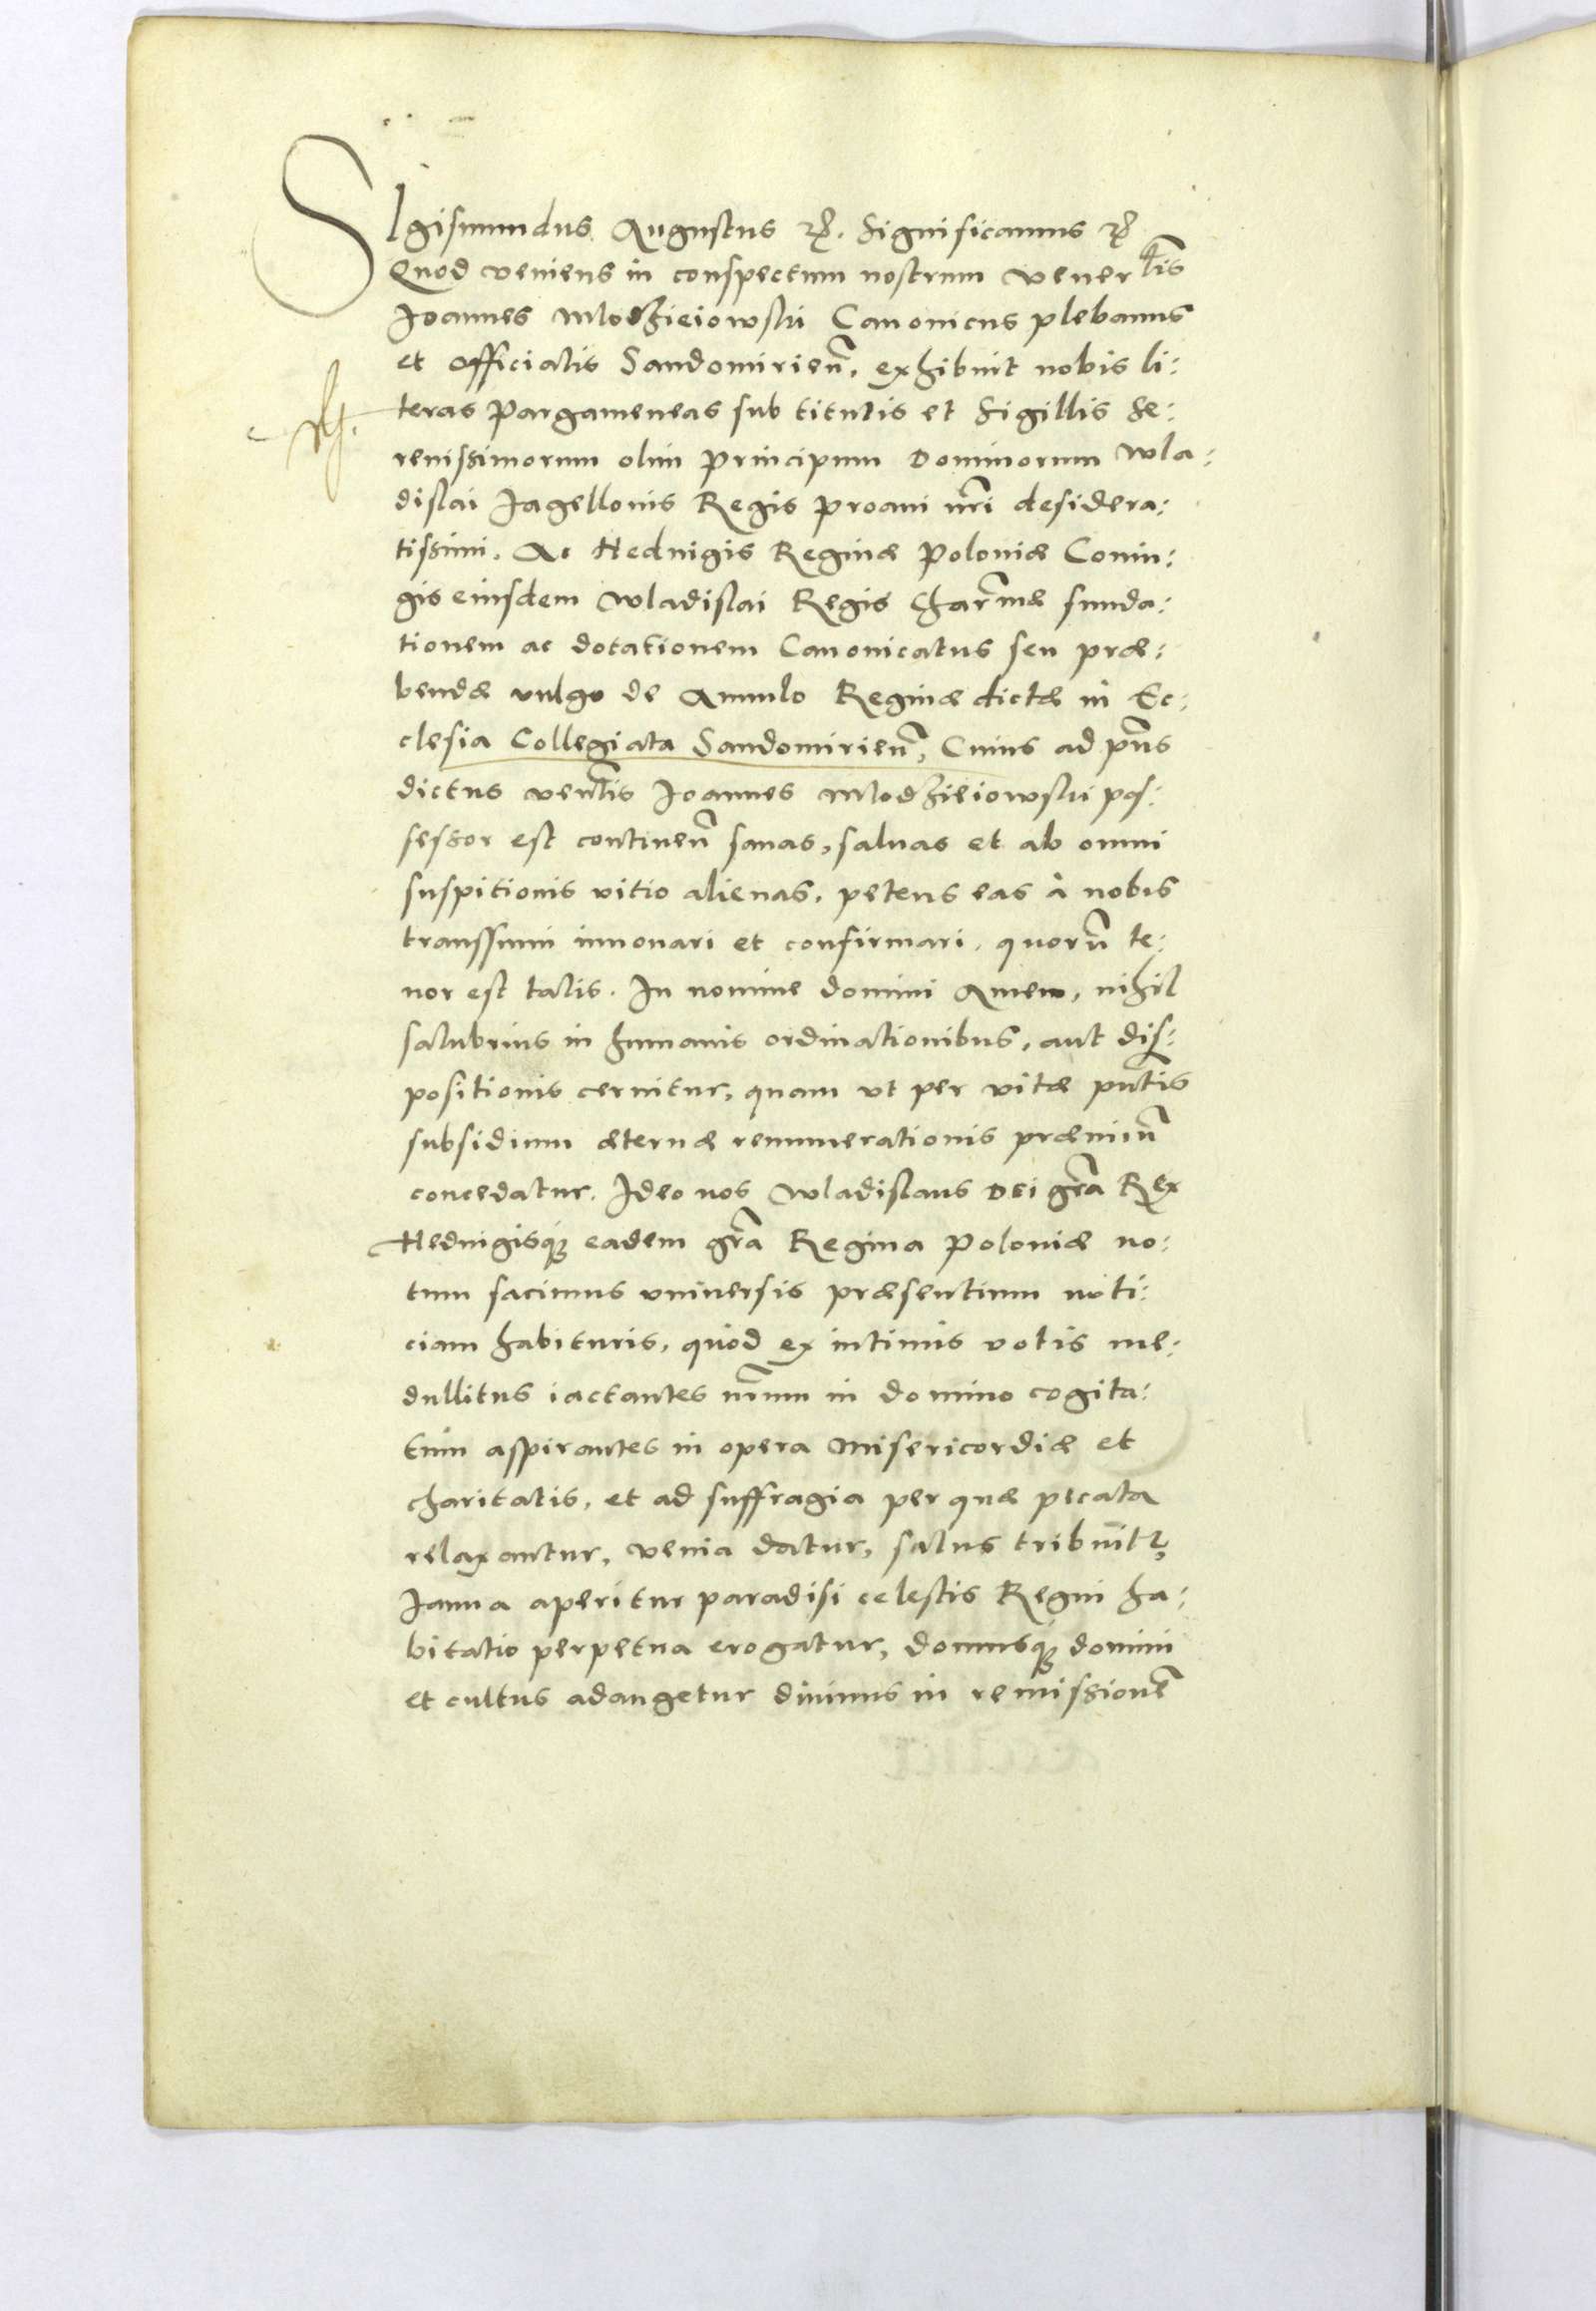 SIgismundus Augustus ꝛc̃. significamus ꝛc̃
Quod veniens in conspectum nostrum venerblis̃
Joannes Mlodzieiowski Canonicus plebanus
et Officialis Sandomirien̄. exhibuit nobis li:
teras Pargameneas sub titulis et sigillis Se:
renissimorum olim Principum Dominorum Wla:
dislai Jagellonis Regis Proaui nr̄i desidera:
tissimi. Ac Heduigis Reginæ Poloniæ Coniu:
gis eiusdem Wladislai Regis char̄mæ funda:
tionem ac dotationem Canonicatus seu præ:
bendæ vulgo de Annulo Reginæ dictæ in Ec:
clesia Collegiata Sandomirien̄, Cuius ad pn̄s
dictus venl̄is Joannes Mlodzieiowski pos:
sessor est continen̄ sanas, saluas et ab omni
suspitionis vitio alienas. petens eas à nobis
transsumi innouari et confirmari. quorū te:
nor est talis. In nomine domini Amen, nihil
salubrius in humanis ordinationibus, aut dis:
positionis cernitur, quam vt per vitæ pn̄tis
subsidium æternæ remunerationis præmiū
concedatur. Ideo nos Wladislaus Dei gr̄a Rex
Heduigisq; eadem gr̄a Regina Poloniæ no:
tum facimus vniuersis præsentium noti:
ciam habituris, quòd ex intimis votis me:
dullitus iactantes nr̄um in domino cogita:
tum aspirantes in opera misericordiæ et
charitatis, et ad suffragia per quæ pecata
relaxantur, venia datur, salus tribuit̄ꝛ,
Janua aperitur paradisi celestis Regni ha:
bitatio perpetua erogatur, domusq; domini
et cultus adaugetur diuinus in remissionē